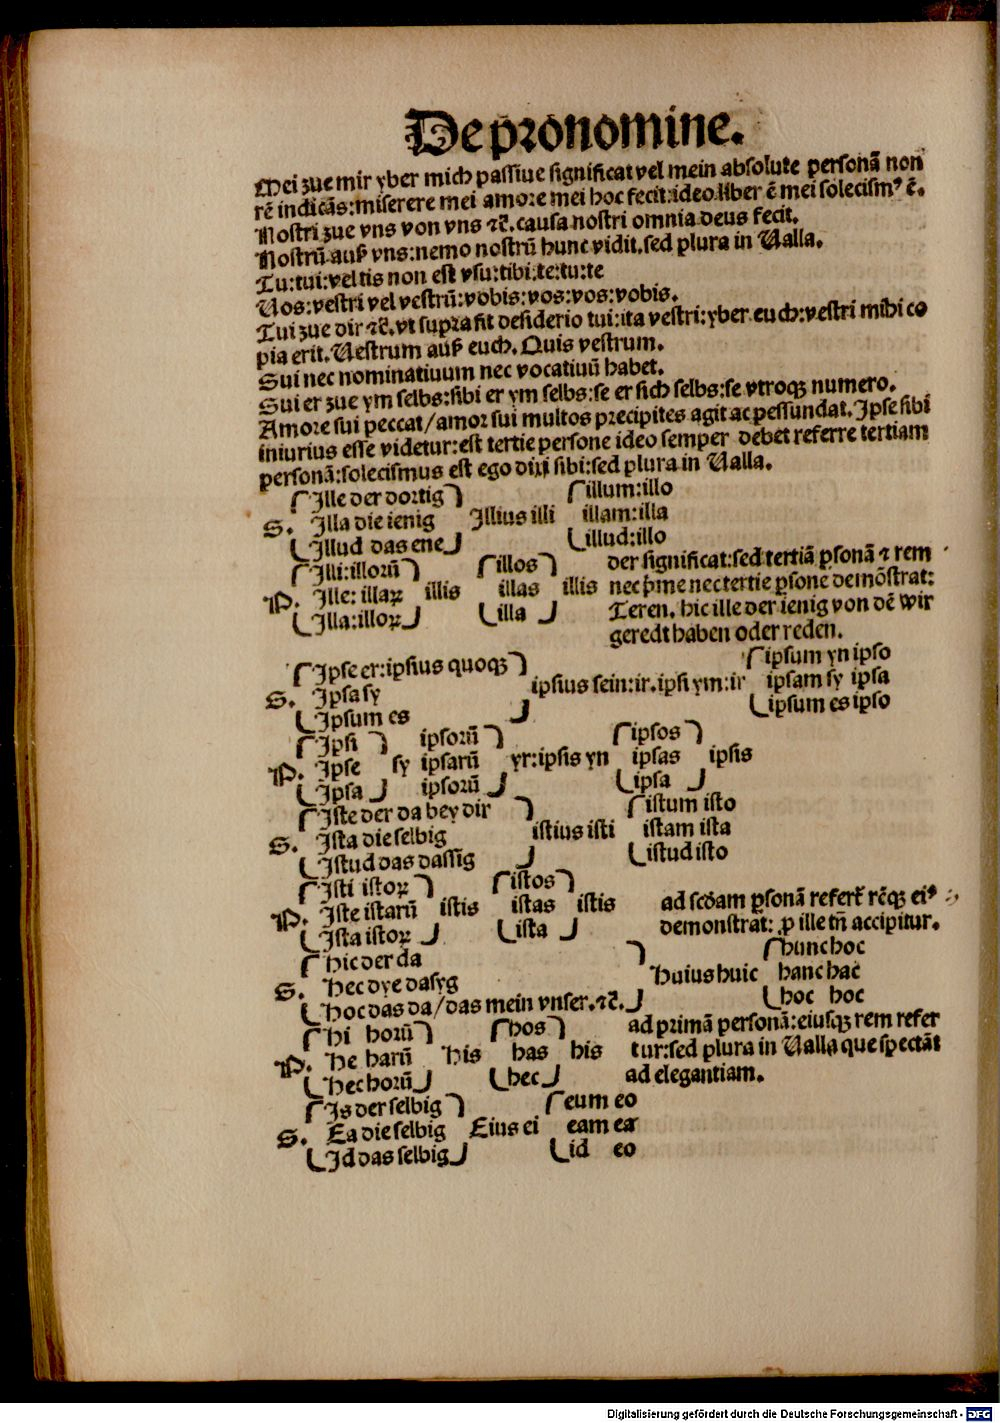 De pronomine.
Mei zue mir yber mich passiue significat vel mein absolute personā non
rē indicās: miserere mei amore mei hoc fecit: ideo liber ē mei solecismꝰ ē.
Nostri zue vns von vns ⁊c̄. causa nostri omnia deus fecit.
Nostrū auß vns: nemo nostrū hunc vidit. sed plura in Ualla.
Tu: tui: vel tis non est vsu: tibi: te: tu: te
Uos: vestri vel vestrū: vobis: vos: vos: vobis.
Tui zue dir ⁊c̄. vt supra fit desiderio tui: ita vestri: yber euch: vestri mihi co
pia erit. Uestrum auß euch. Quis vestrum.
Sui nec nominatiuum nec vocatiuū habet.
Sui er zue ym selbs: sibi er ym selbs: se er sich selbs: se vtroqꝫ numero.
Amore sui peccat/ amor sui multos precipites agit ac pessundat. Ipse sibi
iniurius esse videtur: est tertie persone ideo semper debet referre tertiam
personā: solecismus est ego dixi sibi: sed plura in Ualla.
Ille der dortig illum: illo
S. Illa die ienig Illius illi illam: illa
Illud das ene illud: illo
Illi: illorū illos der significat: sed tertiā ꝑsonā ⁊ rem
P. Ille: illaꝝ illis illas illis nec p̄me nec tertie ꝑsone demōstrat:
Illa: illoꝝ illa Teren. hic ille der ienig von dē wir
geredt haben oder reden.
Ipse er: ipsius quoqꝫ ipsum yn ipso
S. Ipsa sy ipsius sein: ir. ipsi ym: ir ipsam sy ipsa
Ipsum es ipsum es ipso
Ipsi ipsorū ipsos
P. Ipse sy ipsarū yr: ipsis yn ipsas ipsis
Ipsa ipsorū ipsa
Iste der da bey dir istum isto
S. Ista die selbig istius isti istam ista
Istud das dassig istud isto
Isti istoꝝ istos
P. Iste istarū istis istas istis ad scd̄am ꝑsonā refert̄ rēqꝫ eiꝰ
Ista istoꝝ ista demonstrat: ꝓ ille tn̄ accipitur.
Hic der da hunc hoc
S. Hec dye dasyg Huius huic hanc hac
Hoc das da/ das mein vnser. ⁊c̄. hoc hoc
Hi horū hos ad primā personā: eiusqꝫ rem refer
P. He harū His has his tur: sed plura in Ualla que spectāt
Hec horū hec ad elegantiam.
Is der selbig eum eo
S. Ea die selbig Eius ei eam ea
Id das selbig id eo
Digitalisierung gefördert durch die Deutsche Forschungsgemeinschaft - DFG